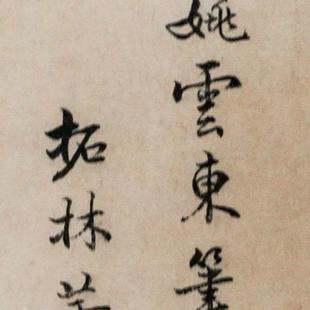 姚雲東筆
拓林